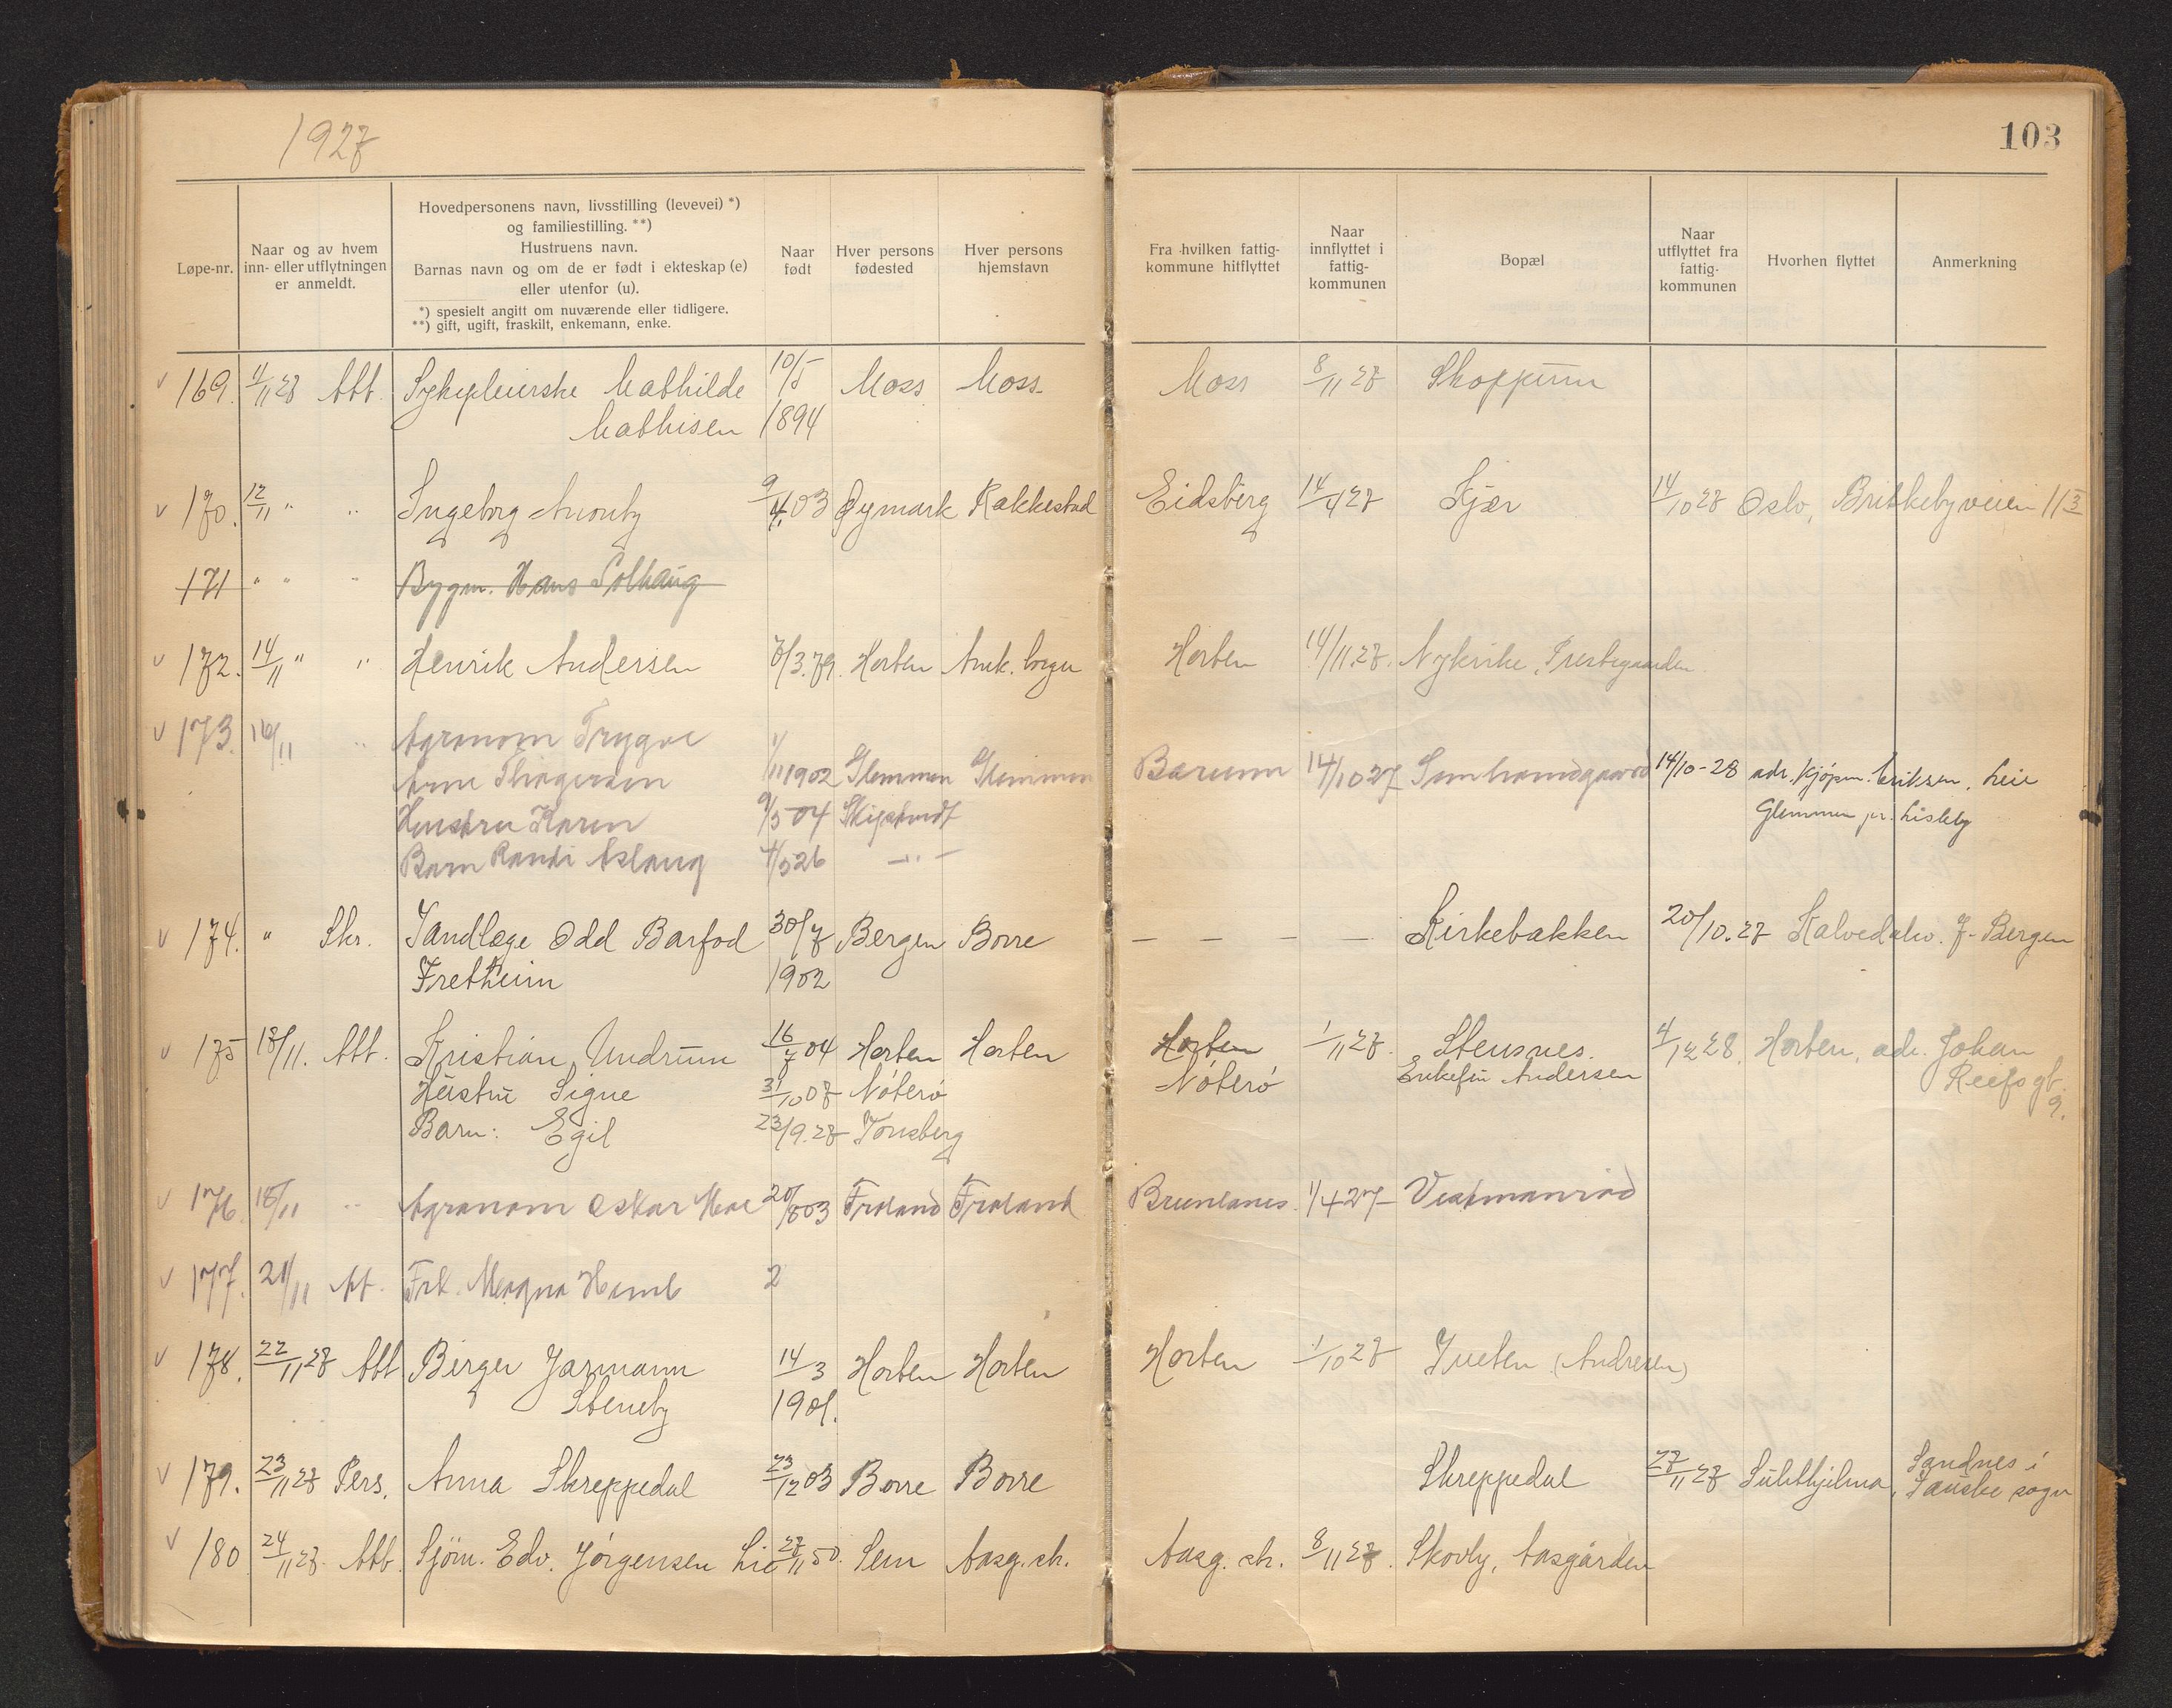 1927
103
Løpe-nr.
Naar og av hvem
inn- eller utflytningen
er anmeldt.
Hovedpersonens navn, livsstilling (levevei) *)
og familiestilling. **)
Hustruens navn.
Barnas navn og om de er født i ekteskap (e)
eller utenfor (u).
*) spesielt angitt om nuværende eller tidligere.
**) gift, ugift, fraskilt, enkemann, enke.
Naar
født
Hver persons
fødested
Hver persons
hjemstavn
Fra hvilken fattig-
kommune hitflyttet
Naar
innflyttet i
fattig-
kommunen
Bopæl
Naar
utflyttet fra
fattig-
kommunen
Hvorhen flyttet
Anmerkning
169. 11/11 27 Att. Sykepleierske Mathilde 10/5 Moss Moss. Moss 8/11 27 Skoppum
Mathisen 1894
170. 12/11 " " Ingeborg 9/4 03 Øymark Rakkestad Eidsberg 14/4 27 Kjær 14/10 27 Oslo, Briskebyveien 11 3
171 " " " Bygm. Hans Solhaug
172. 14/11 " " Henrik Andersen 7/3.79. Horten Amk. borger Horten 14/11.27. Nykirke, Prestegaarden
173. 16/11 " Agronom Trygve
Arne Thorgersen 1/11 1902 Glemmen Glemmen Bærum 14/10 27 14/10-28 adr. kjøpm. Eriksen, Leie
Hustru Karen 9/5 04 Glemmen pr. Lisleby
Barn Randi Aslaug 4/5 26 - " -
174. " Skr. Tandlæge Odd Barfod 30/7 Bergen Borre — — — — Kirkebakken 20/10.27 Kalvedalsv. 7 - Bergen
Fretheim 1902
175 18/11. Att. Kristian Undrum 16/7 04 Horten Horten Horten 1/11 27. Stensnes. 4/12 28. Horten, adr. Johan
Hustru Signe 31/10 07 Nøterø Nøterø Enkefru Andersen Reifsgt.
9.
Barn: Egil 23/9.27 Tønsberg
176. 18/11 " Agronom Oskar Moe 20/8 03 Froland Froland Brunlanes. 1/4 27 Vestmanrød
177. 21/11 Att. Frk. Magna 2
178. 22/11 27 Att Birger Jarmann 14/3 Horten Horten Horten 1/10 27 Tveten (Andresen)
Steneby 1901.
179. 23/11 27 Pers. Anna Skreppedal 23/12 03 Borre Borre Skreppedal 27/11 27 Sulithjelma, Sandnes i
Fauske sogn
180 24/11 27. Att. Sjøm. Edv. Jørgensen Lie 27/11 50. Sem Aasg. st. Aasg. st. 8/11 27. Skovly, Aasgården